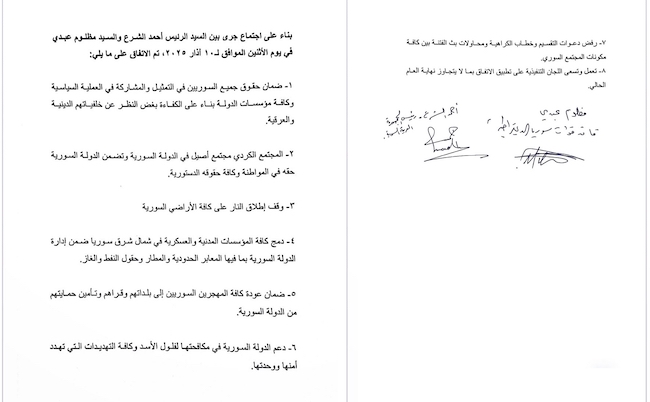 بناء على اجتماع جرى بين السيد الرئيس أحمد الشرع والسيد مظلوم عبدي
في يوم الأثنين الموافق لـ١٠ أذار ٢٠٢٥، تم الاتفاق على ما يلي:
١- ضمان حقوق جميع السوريين في التمثيل والمشاركة في العملية السياسية
وكافة مؤسسات الدولة بناء على الكفاءة بغض النظر عن خلفياتهم الدينية
والعرقية.
٢- المجتمع الكردي مجتمع أصيل في الدولة السورية وتضمن الدولة السورية
حقه في المواطنة وكافة حقوقه الدستورية.
٣- وقف إطلاق النار على كافة الأراضي السورية
٤- دمج كافة المؤسسات المدنية والعسكرية في شمال شرق سوريا ضمن إدارة
الدولة السورية بما فيها المعابر الحدودية والمطار وحقول النفط والغاز.
٥- ضمان عودة كافة المهجرين السوريين إلى بلداتهم وقراهم وتأمين حمايتهم
من الدولة السورية.
٦- دعم الدولة السورية في مكافحتها لفلول الأسد وكافة التهديدات التي تهدد
أمنها ووحدتها.
٧- رفض دعوات التقسيم وخطاب الكراهية ومحاولات بث الفتنة بين كافة
مكونات المجتمع السوري.
٨- تعمل وتسعى اللجان التنفيذية على تطبيق الاتفاق بما لا يتجاوز نهاية العام
الحالي.
مظلوم عبدي
قائد قوات سوريا الديمقراطية
أحمد الشرع رئيس الجمهورية
العربية السورية